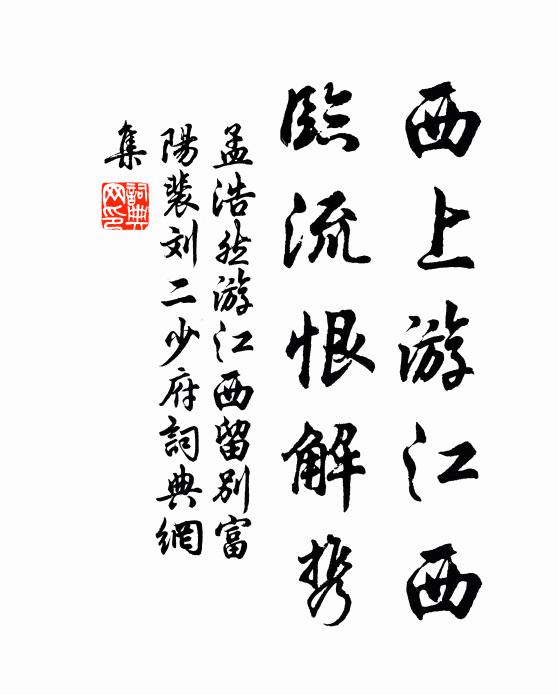 西上游江西
臨流恨解携
孟浩然游江西留別富
陽裴刘二少府詞典網
集
詞典网印